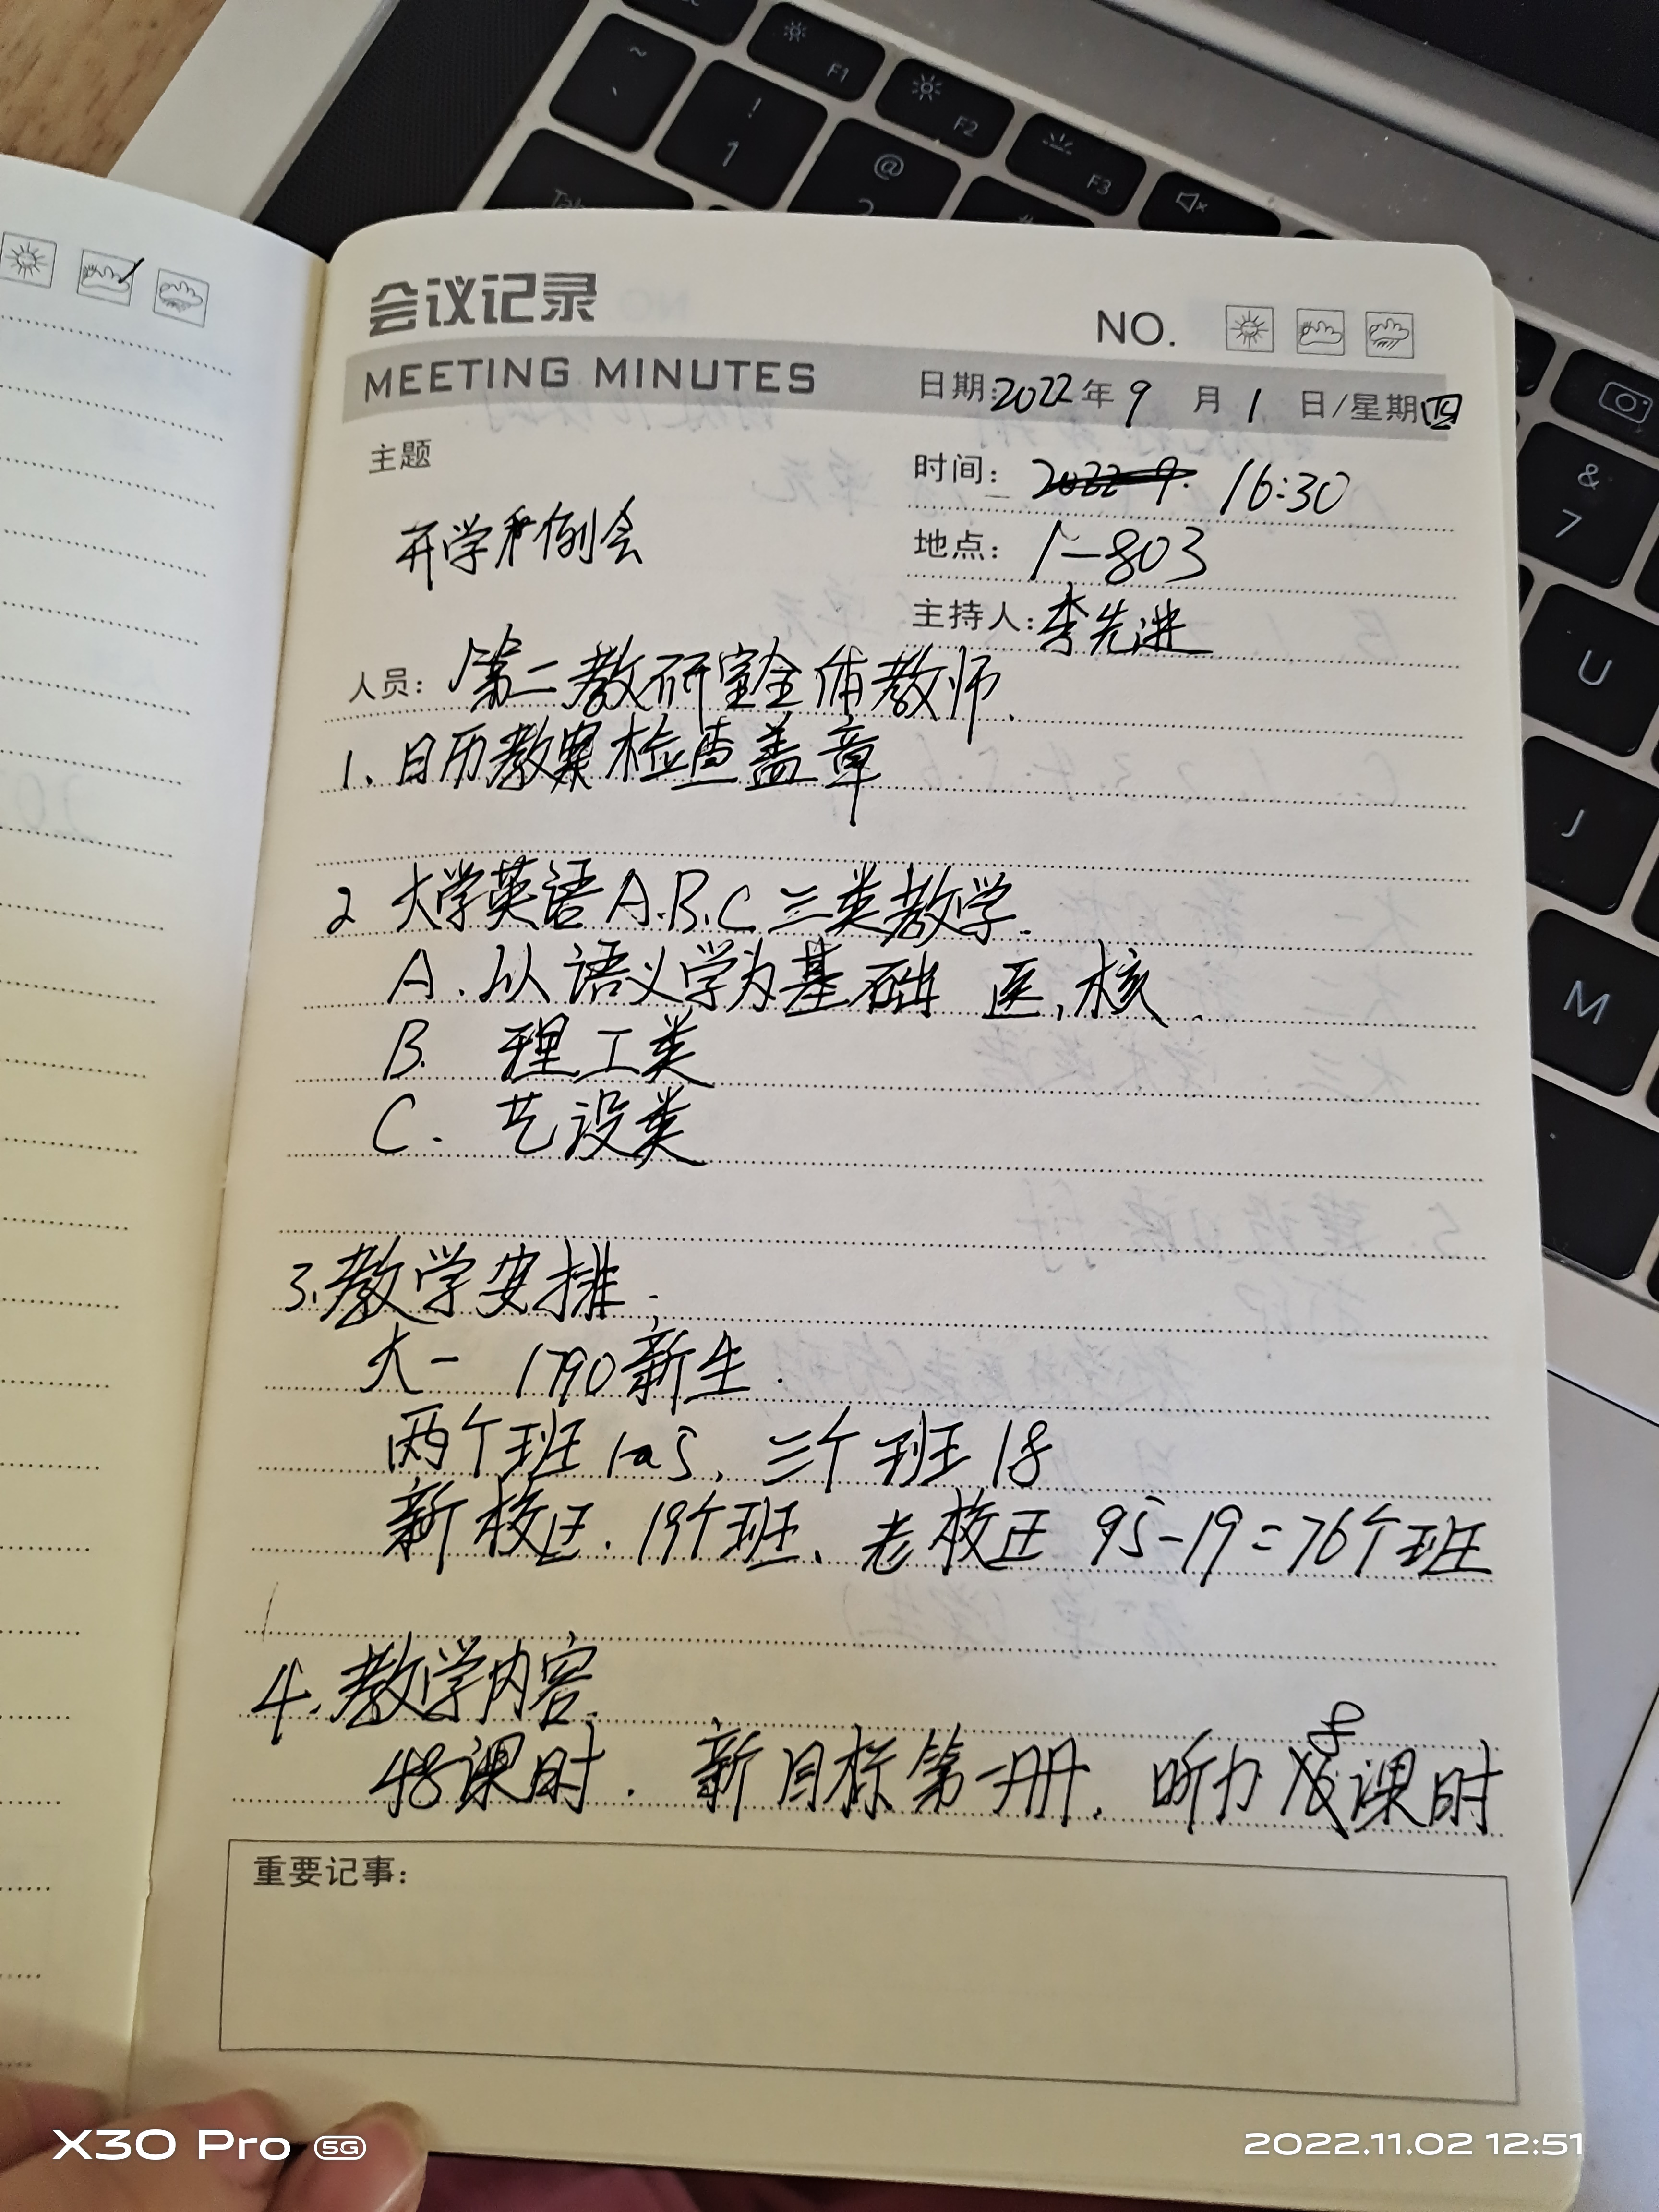 F1
F2
F3
~
`
!
1
@
2
Tab
&
7
U
J
M
会议记录
NO.
MEETING MINUTES
日期:2022年9月1日/星期四
主题
时间: 16:30
开学例会
地点: 1-803
主持人:李先进
人员: 第二教研室全体教师.
1、日历教案检查盖章
2 大学英语A.B.C三类教学.
A.以语义学为基础 医,核.
B. 理工类
C. 艺设类
3.教学安排.
大一 1790新生.
两个班 、三个班 18
新校区.19个班、老校区 95-19=76个班
4.教学内容.
48课时. 新目标第一册. 听力8课时
重要记事:
X30 Pro 5G
2022.11.02 12:51